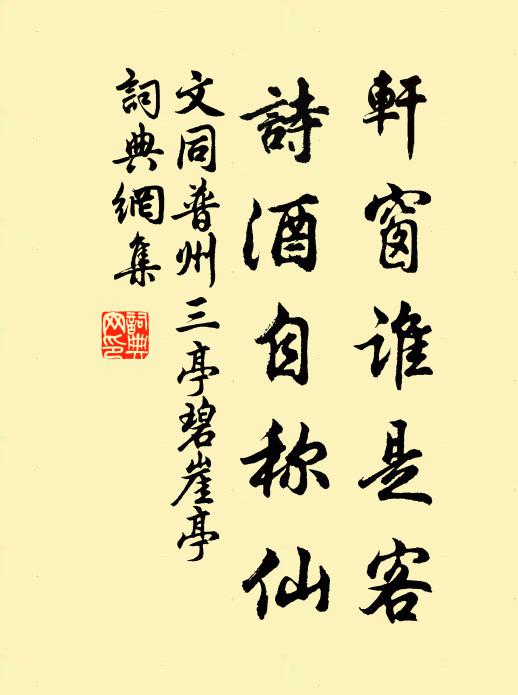 軒窗誰是客
詩酒自称仙
文同普州三亭碧崖亭
詞典網集
詞典網印